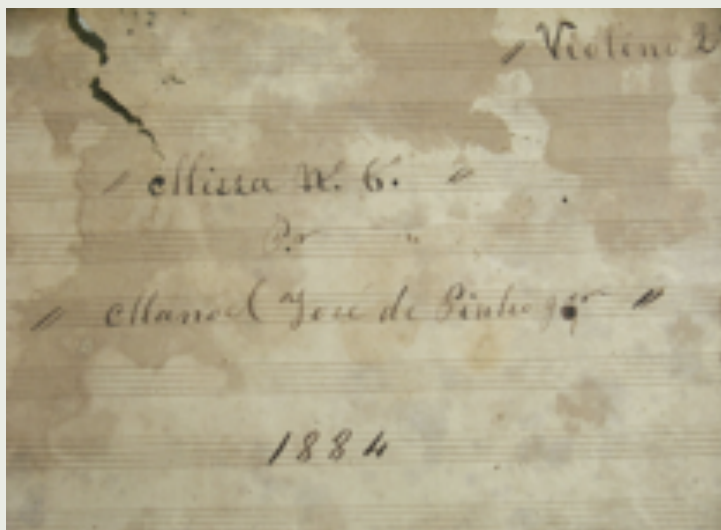 Violino 2
Missa N. 6.
Por
Manoel José de Pinho
1884